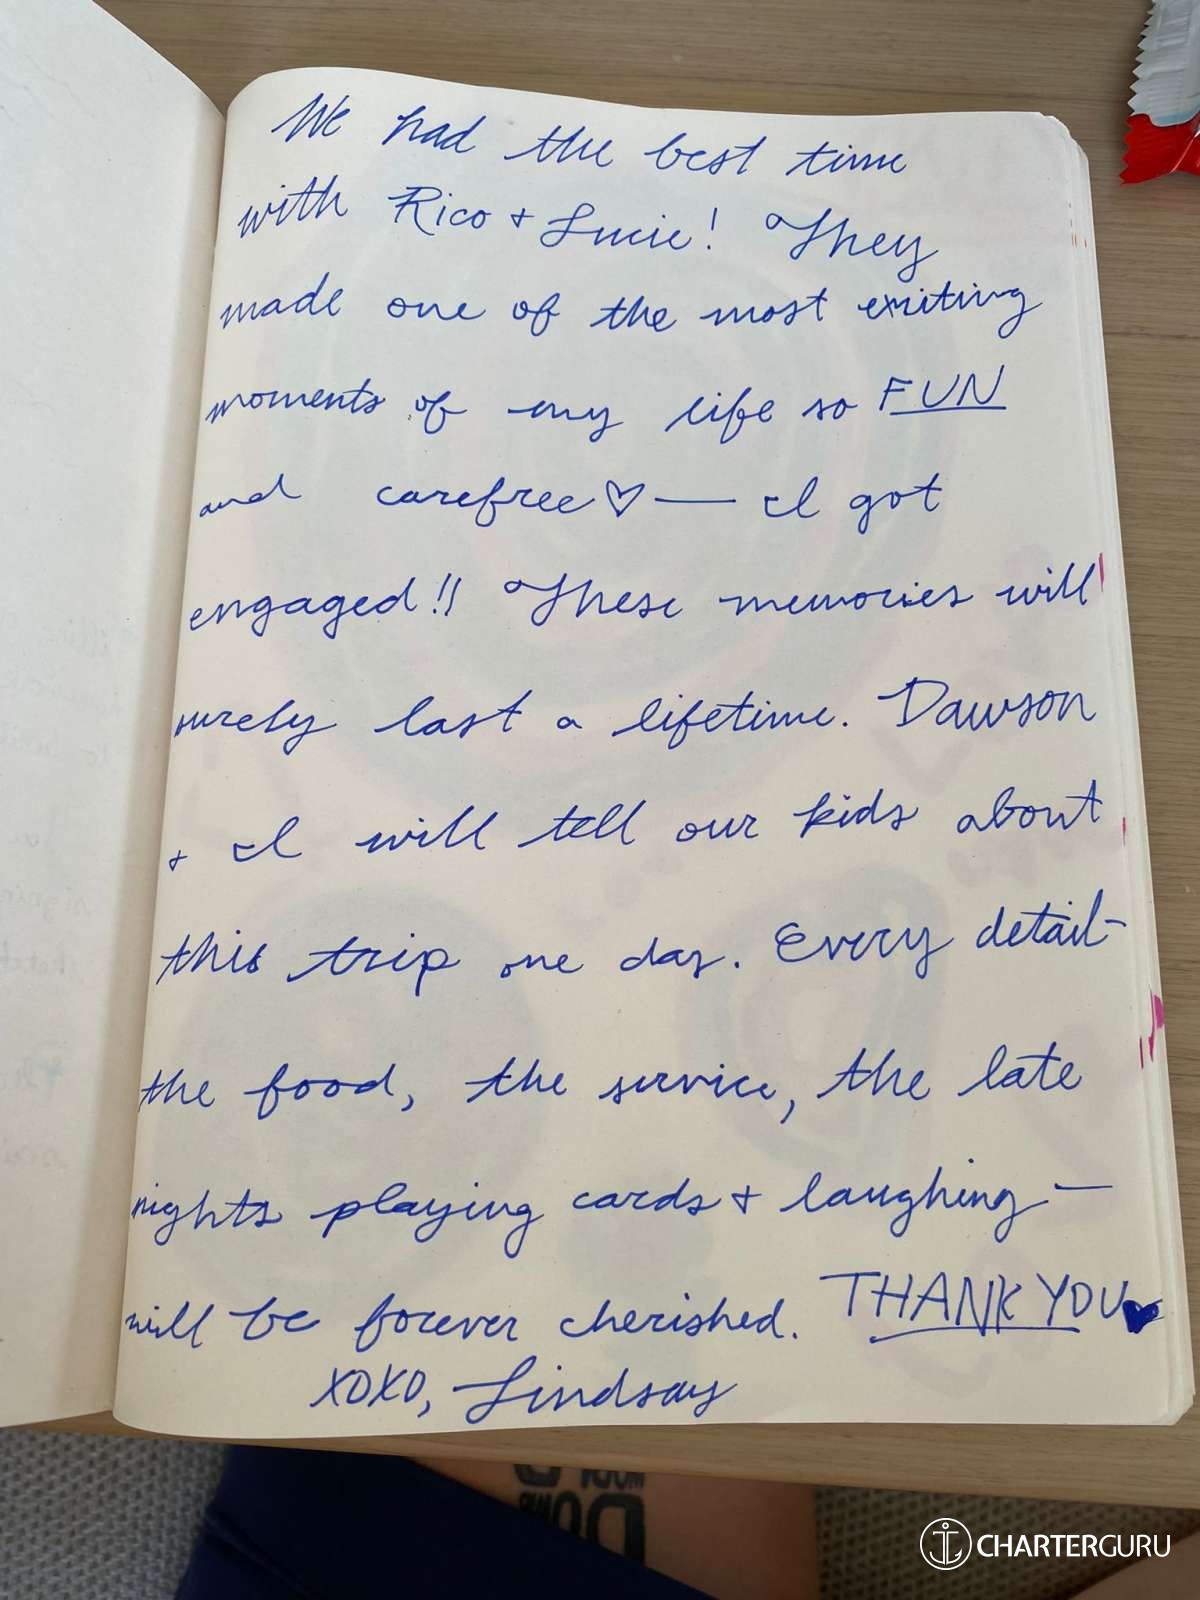 We had the best time
with Rico + Lucie! They
made one of the most exiting
moments of my life so FUN
and carefree♡— I got
engaged!! These memories will
surely last a lifetime. Dawson
+ I will tell our kids about
this trip one day. Every detail-
the food, the service, the late
nights playing cards + laughing —
will be forever cherished. THANK YOU♥
XOXO, Lindsay
CHARTERGURU